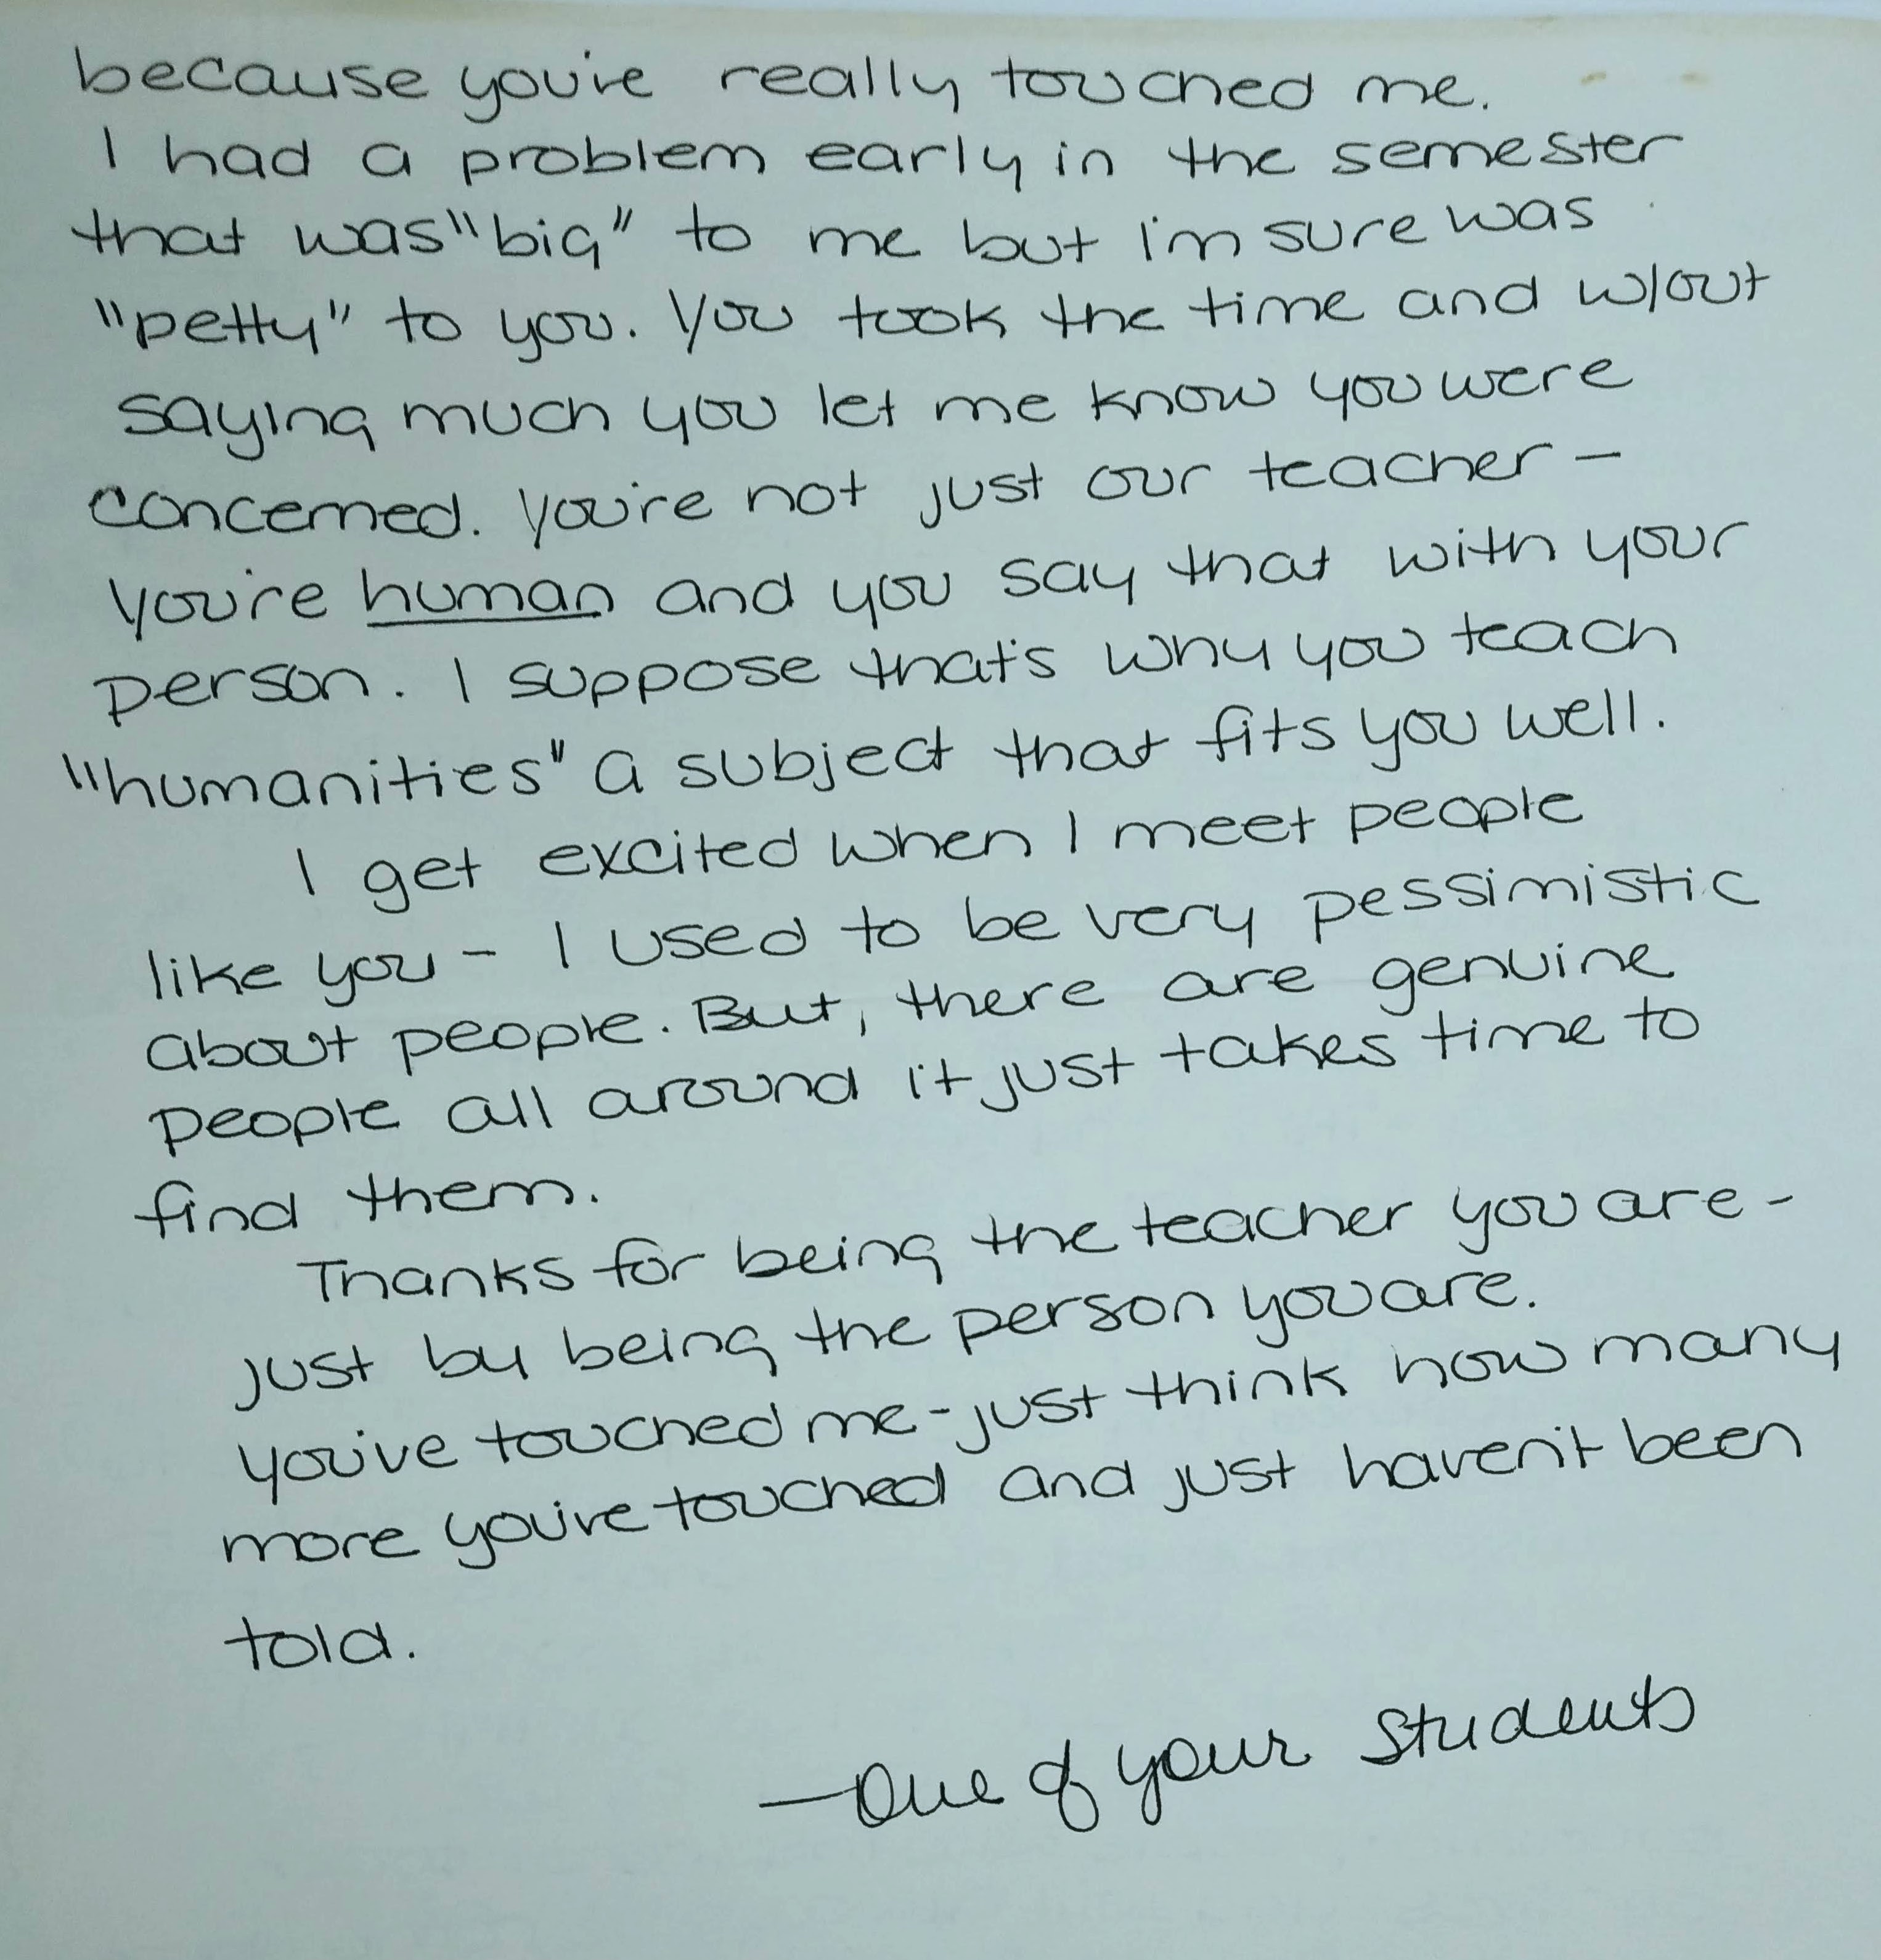 because you've really touched me.
I had a problem early in the semester
that was "big" to me but I'm sure was
"petty" to you. You took the time and w/out
saying much you let me know you were
concerned. You're not just our teacher -
you're human and you say that with your
person. I suppose that's why you teach
"humanities" a subject that fits you well.
I get excited when I meet people
like you - I used to be very pessimistic
about people. But, there are genuine
people all around it just takes time to
find them.
Thanks for being the teacher you are -
just by being the person you are.
you've touched me - just think how many
more you've touched and just haven't been
told.
— One of your students